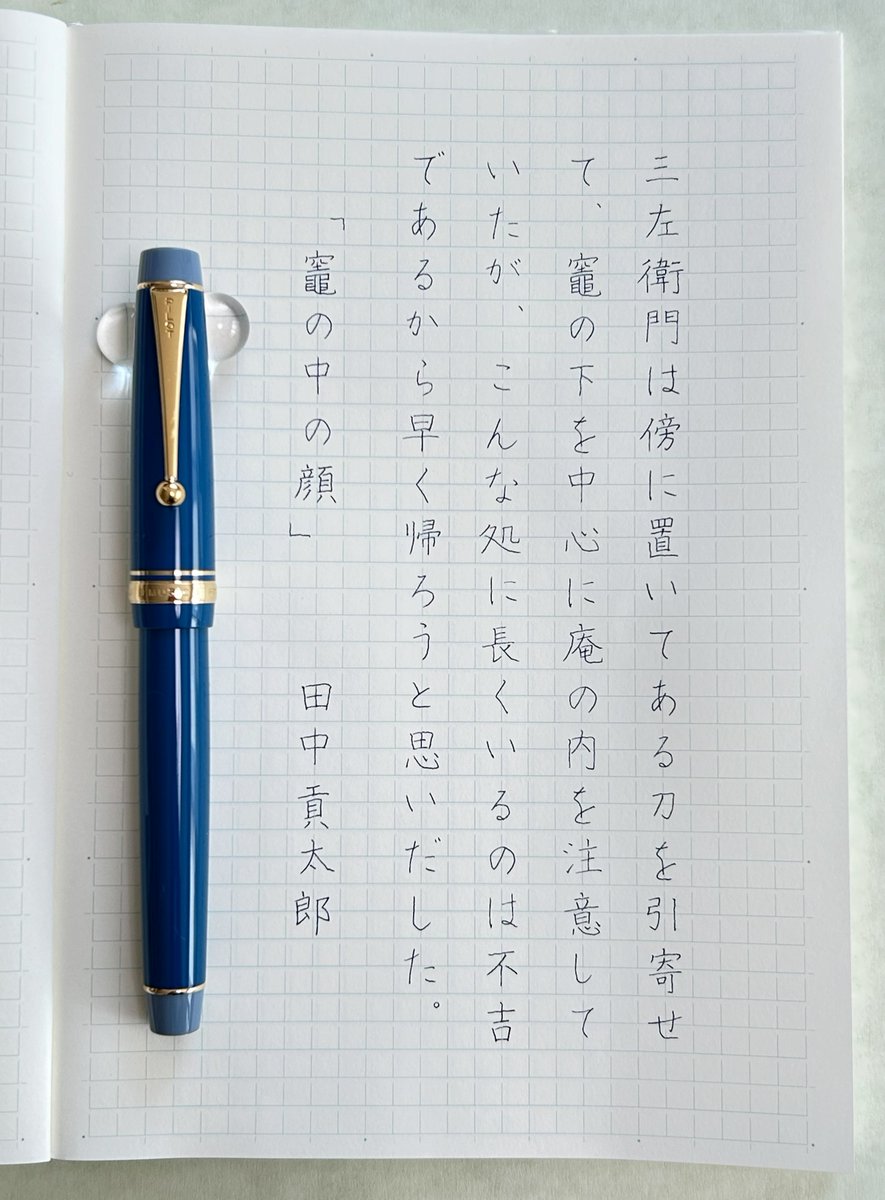 三左衛門は傍に置いてある刀を引寄せ
て、竈の下を中心に庵の内を注意して
いたが、こんな処に長くいるのは不吉
であるから早く帰ろうと思いだした。
「竈の中の顔」　　田中貢太郎
PILOT